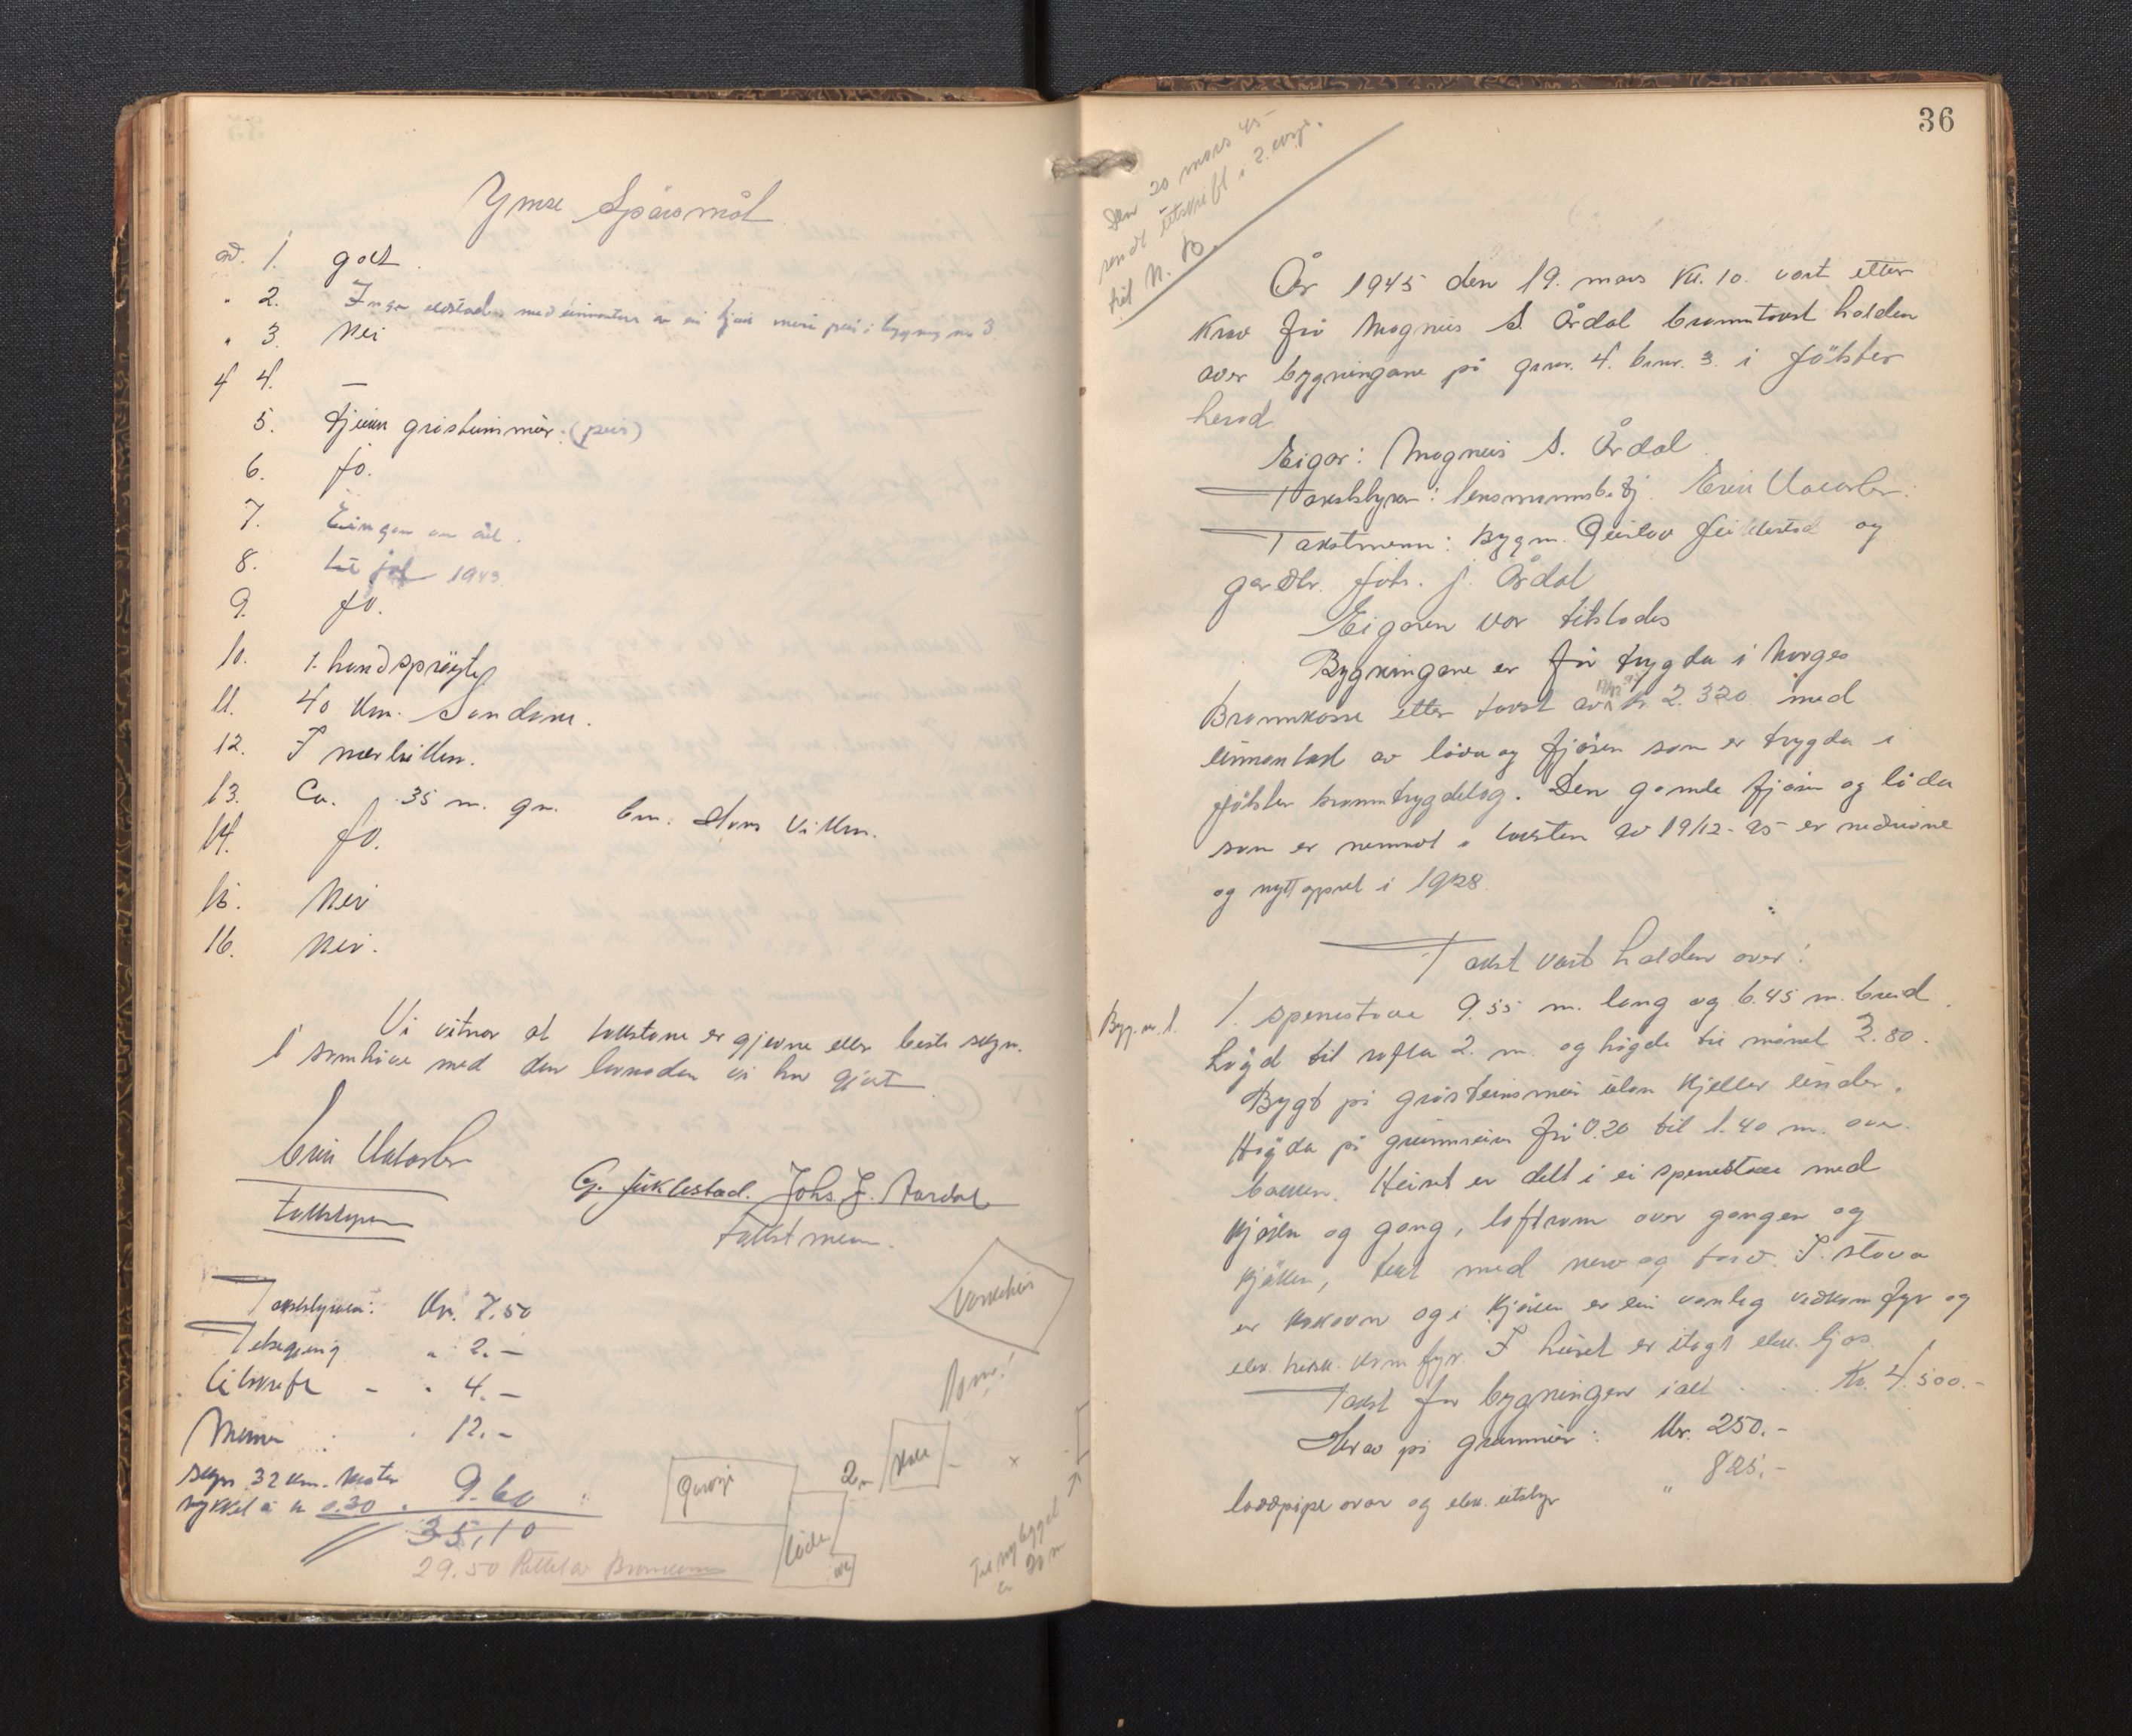 Ymse Spørsmål
ad. 1. godt.
" 2. Inga eldstader med unntak av ein i bygning nr 3.
" 3. Nei
4. —
5. gråsteinmur. (peis)
6. Jo.
7. Eingen om ått.
8. 1943.
9. Jo.
10. 1. handsprøyte
11. 40 km. Sandane.
12. I nærleiken.
13. Ca. 35 m.
14. Jo.
15. Nei
16. Nei.
Vi vitnar at takstane er gjevne etter beste skyn.
i samhøve med den lovnaden vi har gjort
Takststyrar
G. Juklestad. Johs. J. Aardal
Takstmenn.
Takststyraren: Kr. 7.50
" 2.-
Utskrift - " 4.-
12.-
Skyss 32 km. motor
sykkel a kr 0.30 . 9.60
35,10
29.50 Brannkassa
Vaskehus
garasje
2 m
løde
Til nybygget
ca 20 m
36
Den 20 mars 45
sendt utskrift i 2. eks.
til N. B.
År 1945 den 19. mars kl. 10. vart etter
krav frå Magnus S. Årdal branntakst halden
over bygningane på gnr. 4. bnr. 3. i Jölster
herad
Eigar: Magnus S. Årdal.
Takststyrar: lensmannsbetj.
Takstmenn: Bygm. Gustav Juklestad og
gardbr. Johs. J. Årdal
Eigaren var tilstades
Bygningane er før trygda i Norges
Brannkasse etter takst av kr. 2.320 med
unnantak av løda og fjøsen som er trygda i
Jölster branntrygdelag. Den gamle fjøsen og løda
som er nemnd i taksten av 19/12-25 er nedrivne
og nytt oppsett i 1928.
Takst vart halden over:
Bygg. nr. 1. 1. sperrestove 9.55 m. lang og 6.45 m. breid.
högd til rafta 2. m. og högde til mønet 3.80.
Bygt på gråsteinsmur utan kjellar under.
Høgda på grunnmuren frå 0.20 til 1.40 m. over
bakken. Huset er delt i ei sperrestove med
kjøken og gang, loftrom over gangen og
kjøken, tekt med never og torv. I stova
er kakovn og i kjøken er ein vanleg vedkomfyr og
elek. komfyr. I huset er ilagt elek. ljos.
Takst for bygningen ialt . . . Kr. 4.500.-
Herav på grunnmur: Kr. 250.-
loddpipe ovnar og elek. utstyr " 825.-